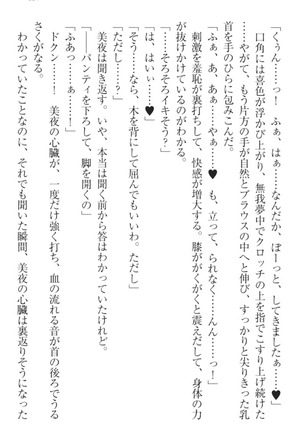 「くぅん……っ！　ふぁ、はぁ……なんだか、ぽーっと、してきましたぁ……♥」
口角には喜色が浮かび上がり、無我夢中でクロッチの上を指でこすり上げ続ける。そして、もう片方の手が自然とブラウスの中へと伸び、すっかりと尖りきった乳首を手のひらに包みこんだ。
「ふぁ、あ、あぁ……やぁ……♥　も、立って、られなく……んん……っ！」
刺激を羞恥が裏打ちして、快感が増していく。膝ががくがくと震えだして、身体の力が抜けかけているのがわかる。
「そろそろイキそう？」
「は、はいぃ……♥」
「そう……なら、木を背にして屈んでもいいわ。ただし」
「ただし……？」
美夜は聞き返す。いや、本当は聞く前から答はわかっていたけれど。
「――パンティを下ろして、脚を開くの」
「ふあっ……ぁ……！」
ドクン――！　美夜の心臓が、一度だけ強く打ち、血の流れる音が首の後ろでうるさくなる。
わかっていたことなのに、それでも聞いた瞬間、美夜の心臓は裏返りそうになった